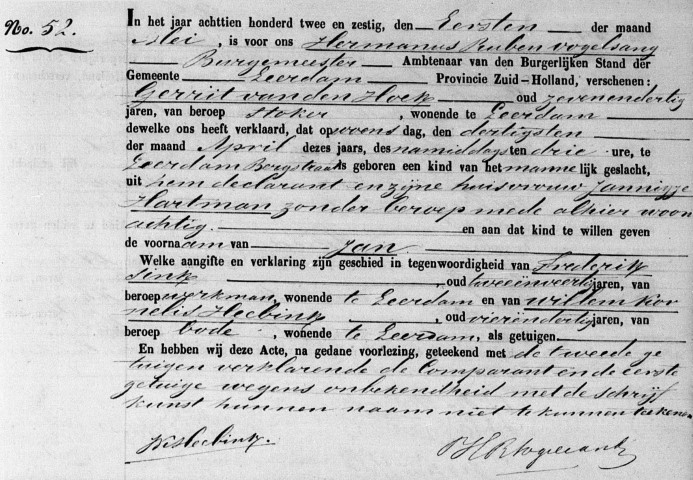 No. 52.
In het jaar achttien honderd twee en zestig, den Eersten der maand
Mei, is voor ons Hermanus Ruben Vogelsang
Burgemeester Ambtenaar van den Burgerlijken Stand der
Gemeente Leerdam Provincie Zuid-Holland, verschenen:
Gerrit van den Hoek oud zevenendertig
jaren, van beroep stoker, wonende te Leerdam
dewelke ons heeft verklaard, dat op woensdag, den dertigsten
der maand April dezes jaars, des namiddags ten drie ure, te
Leerdam Bergstraat is geboren een kind van het mannelijk geslacht,
uit hem declarant en zijne huisvrouw Jannigje
Hartman zonder beroep mede alhier woon
achtig. en aan dat kind te willen geven
de voornaam van Jan
Welke aangifte en verklaring zijn geschied in tegenwoordigheid van Frederik
Sink, oud tweeënveertig jaren, van
beroep werkman, wonende te Leerdam en van Willem Kor
nelis Heebink, oud vierëndertig jaren, van
beroep bode, wonende te Leerdam, als getuigen.
En hebben wij deze Acte, na gedane voorlezing, geteekend met de tweede ge
tuigen verklarende de Comparant en de eerste
getuige wegens onbekendheid met de schrijf
kunst hunnen naam niet te kunnen teekenen
WK Heebink.